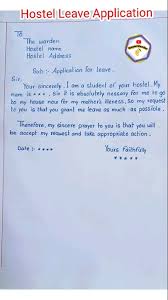 Hostel Leave Application
To
The warden
Hostel name
Hostel Address
Sub:- Application for leave.
Sir,
Your sincerely I am a student of your hostel. My
name is ****. Sir it is absolutely necessary for me to go
to my house now for my mother's illness, so my request
to you is that you grant me leave as much as possible.
Therefore, my sincere prayer to you is that you will
be accept my request and take appropriate action.
Date :- ****
Yours Faithfully
*****